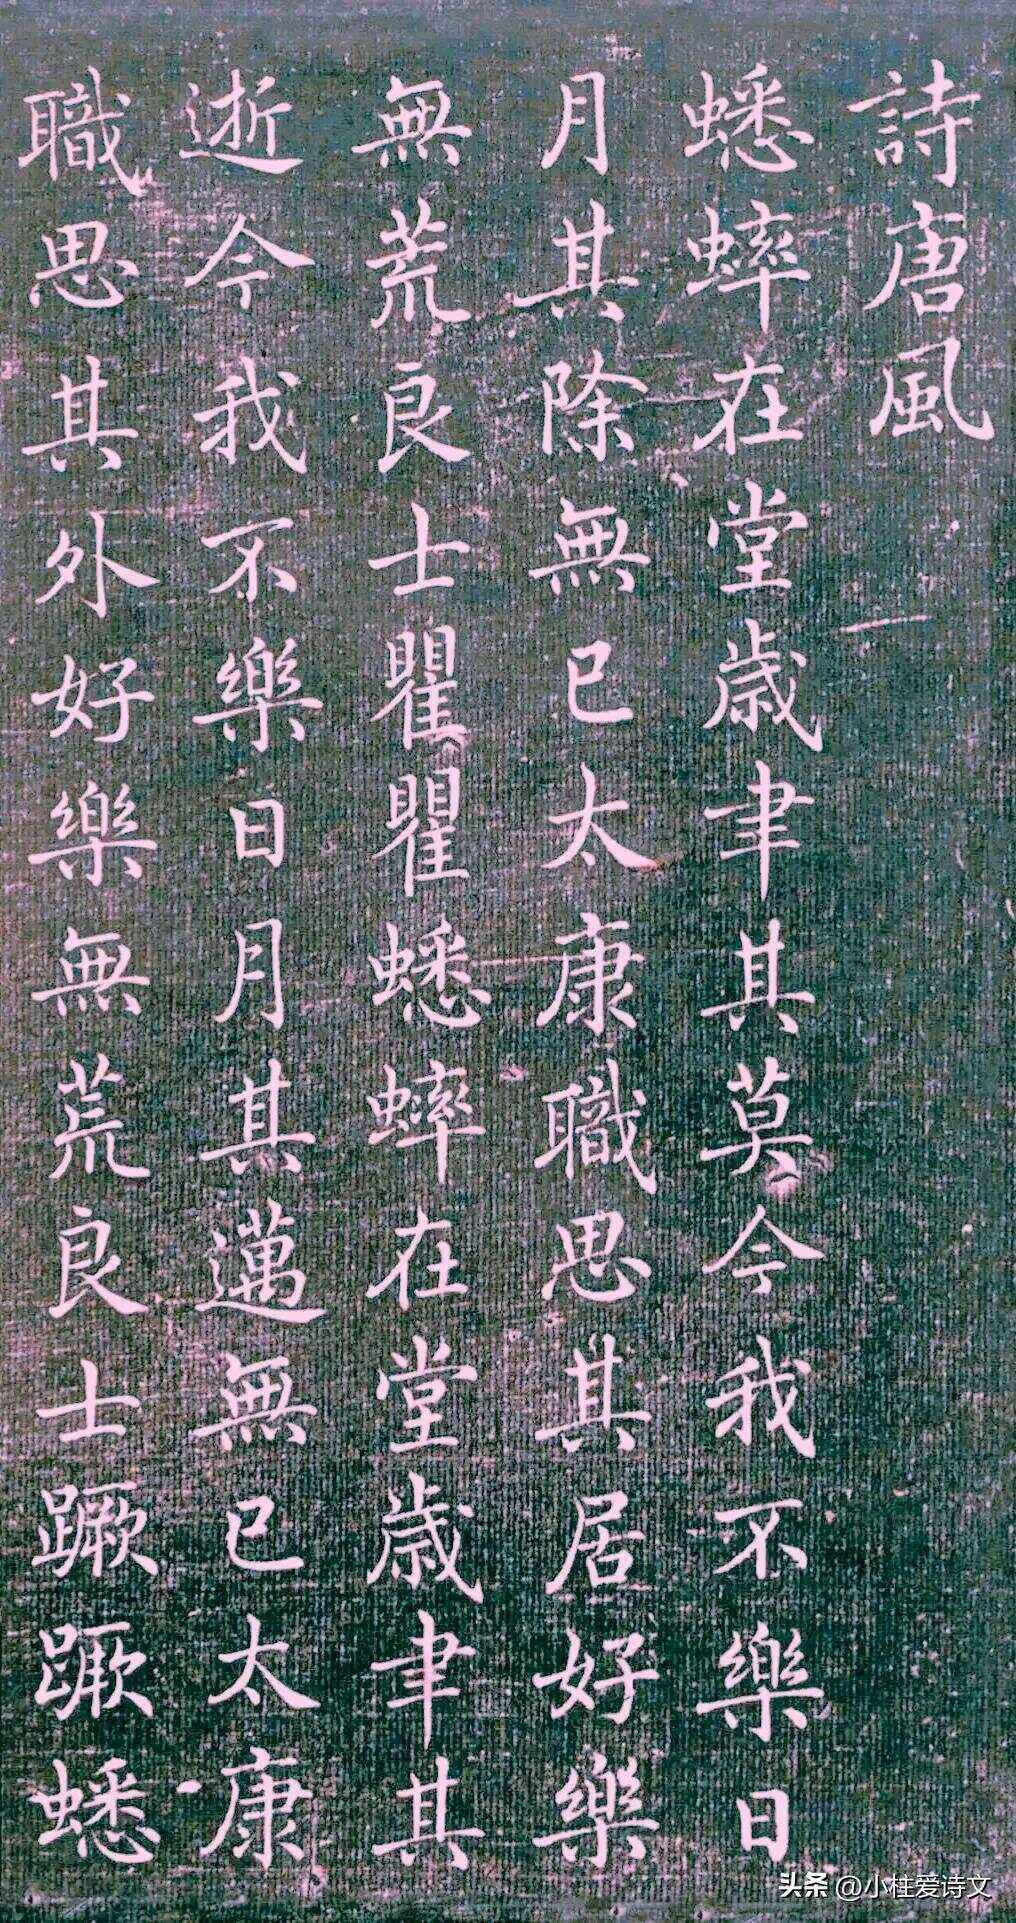 詩唐風
蟋蟀在堂歳聿其莫今我不樂日
月其除無已太康職思其居好樂
無荒良士瞿瞿蟋蟀在堂歳聿其
逝今我不樂日月其邁無已太康
職思其外好樂無荒良士蹶蹶蟋
头条 @小柱爱诗文